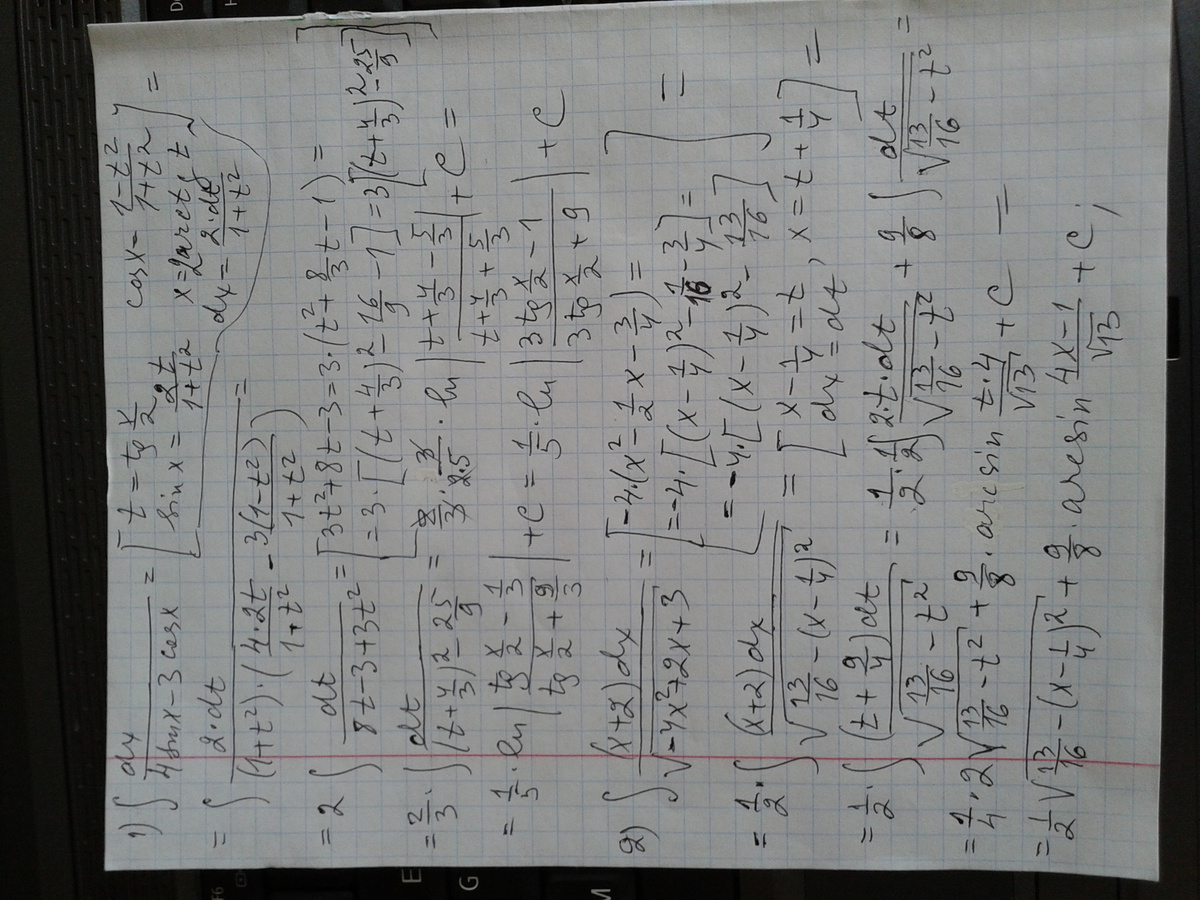 1) ∫ dx / (4 sin x − 3 cos x) = [ t = tg x/2   cos x = (1−t²)/(1+t²)
sin x = 2t/(1+t²)   x = 2 arctg t
dx = 2·dt/(1+t²) ] =
= ∫ 2·dt / ((1+t²)·(4·2t/(1+t²) − 3(1−t²)/(1+t²))) =
= 2 ∫ dt / (8t−3+3t²) = [ 3t²+8t−3 = 3·(t²+8/3 t−1) =
= 3·[(t+4/3)²−16/9−1] = 3[(t+4/3)²−25/9] ]
= 2/3 · ∫ dt / ((t+4/3)²−25/9) = 2/3 · 3/(2·5) · ln |(t+4/3−5/3)/(t+4/3+5/3)| + C =
= 1/5 · ln |(tg x/2 − 1/3)/(tg x/2 + 9/3)| + C = 1/5 · ln |(3 tg x/2 − 1)/(3 tg x/2 + 9)| + C
2) ∫ (x+2)dx / √(−4x²+2x+3) = [ −4·(x²−1/2 x−3/4) =
= −4·[(x−1/4)²−1/16−3/4] =
= −4·[(x−1/4)²−13/16] ] =
= 1/2 · ∫ (x+2)dx / √(13/16−(x−1/4)²) = [ x−1/4 = t
dx = dt, x = t+1/4 ] =
= 1/2 · ∫ (t+9/4)dt / √(13/16−t²) = 1/2 · 1/2 ∫ 2·t·dt / √(13/16−t²) + 9/8 ∫ dt / √(13/16−t²) =
= 1/4 · 2√(13/16−t²) + 9/8 · arcsin t·4/√13 + C =
= 1/2 √(13/16−(x−1/4)²) + 9/8 · arcsin (4x−1)/√13 + C;